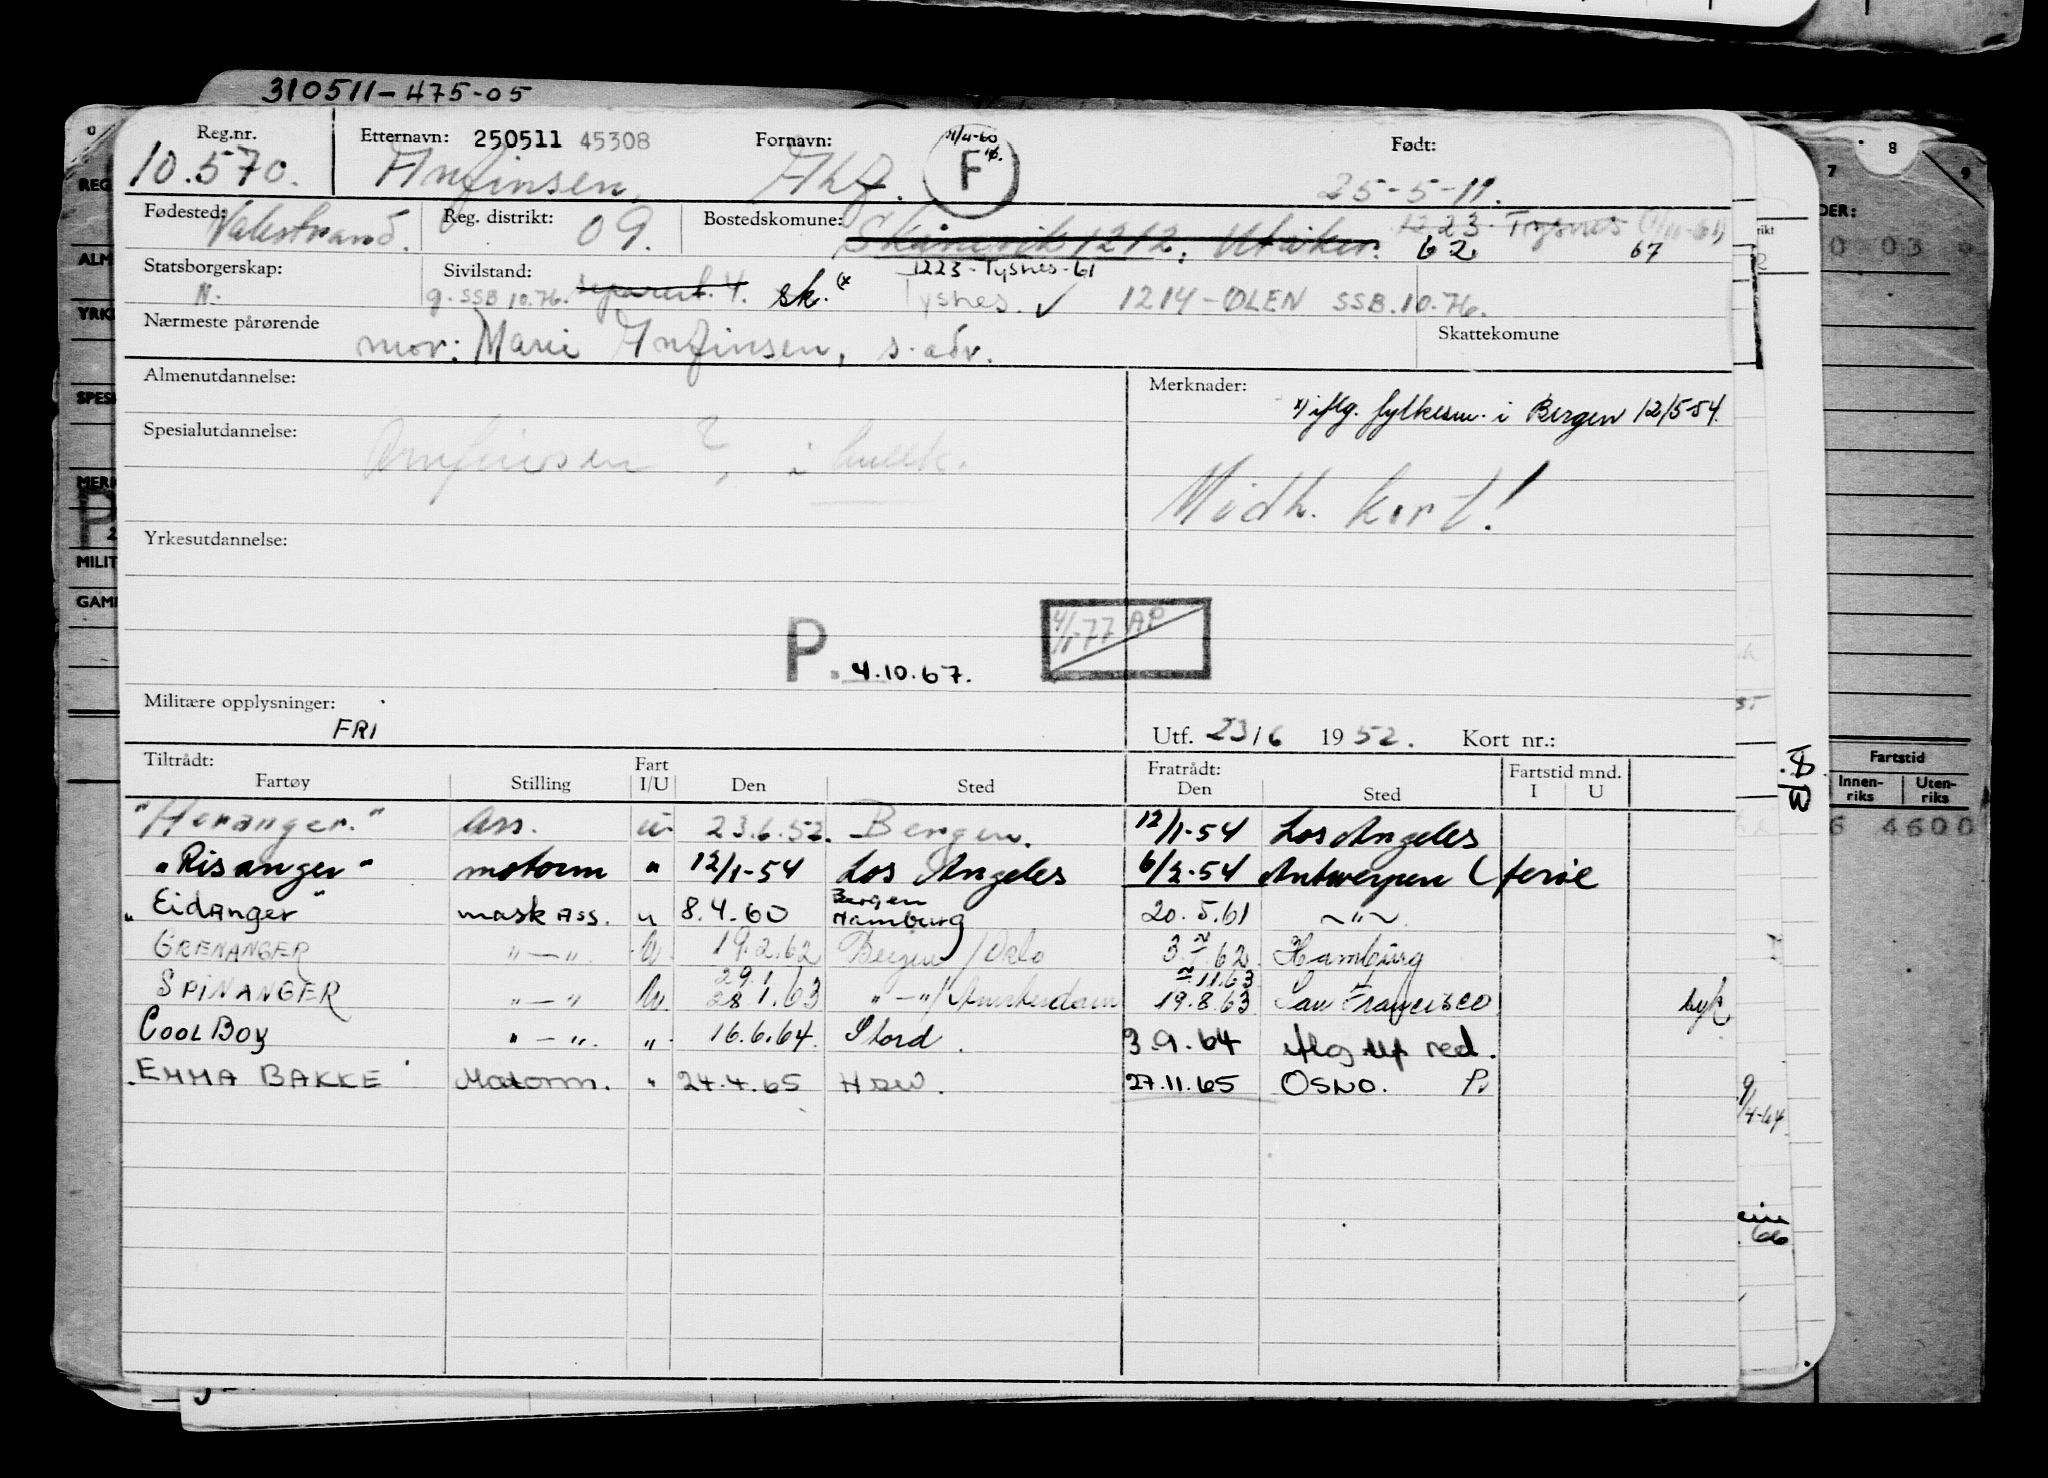 310511-475-05
Reg.nr. Etternavn: 250511 45308 Fornavn: Født:
10.570. Anfinsen, Alf. F 25-5-11.
Fødested: Valestrand. Reg. distrikt: 09. Bostedskomune: Skånevik 1212, Utåker. 1223 Tysnes
62 67
1223-Tysnes-61
Statsborgerskap: N. Sivilstand: g. SSB 10.76. separert. 4. sk. (x Tysnes. ✓ 1214-ØLEN SSB.10.76.
Nærmeste pårørende mor: Marie Anfinsen, s. adr. Skattekomune
Almenutdannelse: Merknader:
x) iflg. fylkesm. i Bergen 12/5-54.
Spesialutdannelse: Amfinsen ?, i
Midh. kort!
Yrkesutdannelse:
4/1-77 AP
P. 4.10.67.
Militære opplysninger: FRI
Utf. 23/6 1952. Kort nr.:
Tiltrådt: Fart Fratrådt: Fartstid mnd.
Fartøy Stilling I/U Den Sted Den Sted I U
"Heranger." Ass. u. 23.6.52. Bergen. 12/1-54 Los Angeles
"Risanger" motorm " 12/1-54 Los Angeles 6/2-54 Antwerpen (ferie
"Eidanger" mask Ass. u 8.4.60 Bergen Hamburg 20.5.61 ~"~.
GRENANGER "-". U. 19.2.62 Bergen/Oslo 3.7.62. Hamburg
29.1 11.63
SPINANGER "-" U. 28.1.63 "-"/Amsterdam 19.8.63 San Francisco syk
COOL BOY "-". ". 16.6.64. Stord. 3.9.64 iflg red.
EMMA BAKKE Motorm. " 24.4.65 HDW. 27.11.65 OSLO. P.
REG
ALM
YRK
SPES
MERK
P
MILIT
GAM
7 8 9
DER:
0 03
Fartstid
Innen-riks Uten-riks
6 4600
9/4-64
66